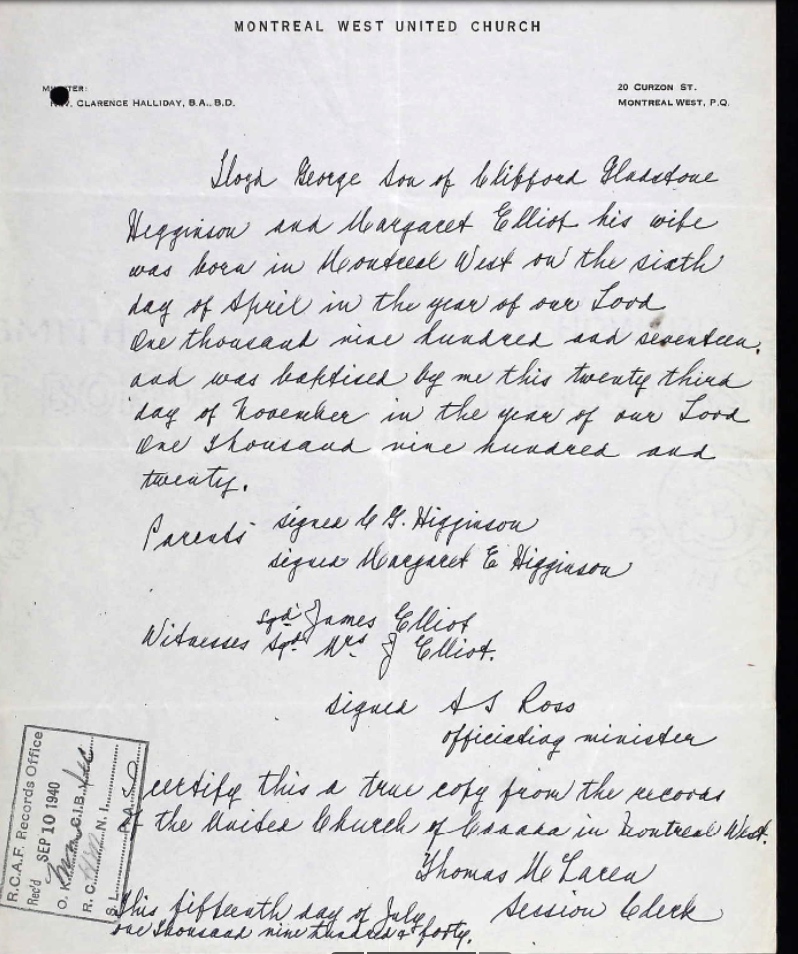 MONTREAL WEST UNITED CHURCH
20 CURZON ST.
CLARENCE HALLIDAY, B.A., B.D.
MONTREAL WEST, P.Q.
Lloyd George Son of Clifford Gladstone
Higginson and Margaret Elliot his wife
was born in Montreal West on the sixth
day of April in the year of our Lord
One thousand nine hundred and seventeen.
and was baptised by me this twenty third
day of November in the year of our Lord
One thousand nine hundred and
twenty.
Parents signed C G. Higginson
signed Margaret E Higginson
sgd James Elliot
Witnesses sgd Mrs J Elliot.
signed A S Ross
officiating minister
certify this a true copy from the records
of the United Church of Canada in Montreal West.
Thomas McLaren
Session Clerk
This fifteenth day of July
one thousand nine hundred & forty.
R.C.A.F. Records Office
Rec'd SEP 10 1940
O. K. C.I.B.
R. C. N. I.
S. L. P. A.